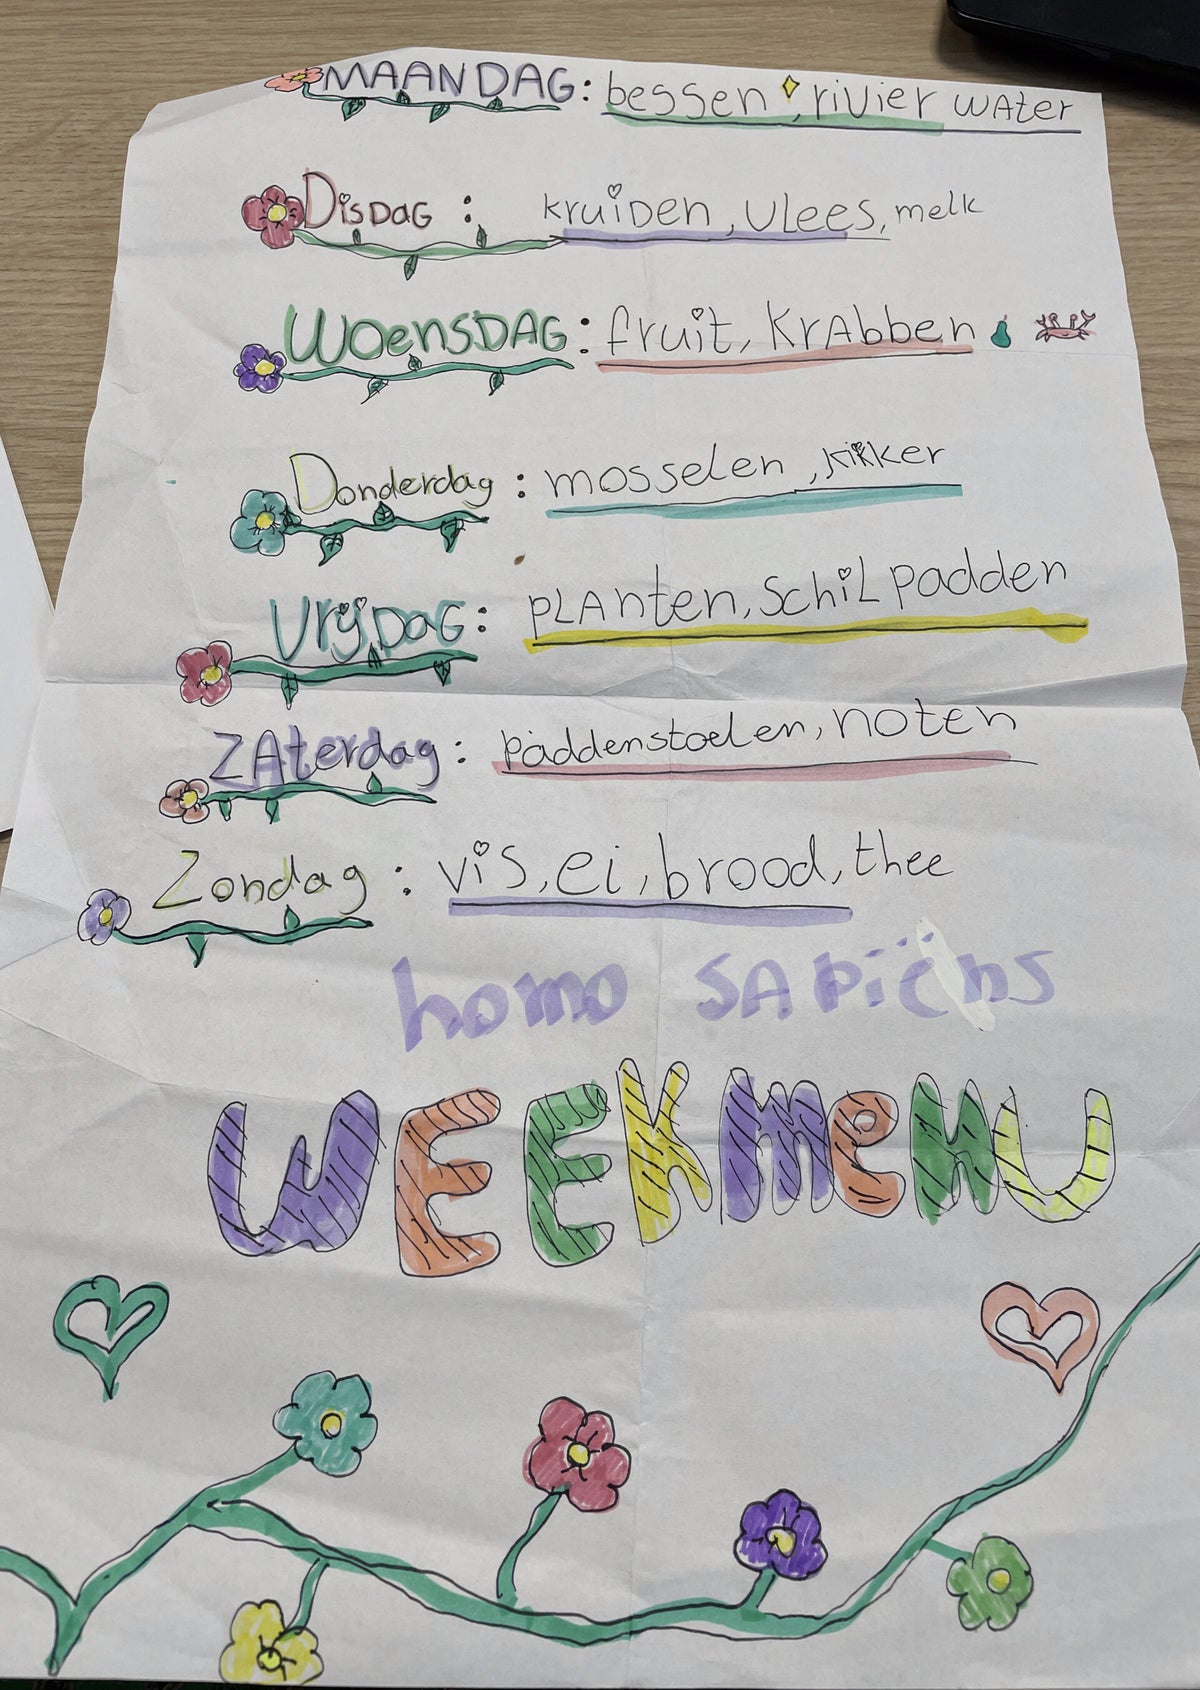 MAANDAG: bessen, rivier water
DisDAG: kruiden, vlees, melk
WOensDAG: fruit, KrAbben
Donderdag: mosselen, kikker
VrijDAG: PLAnten, SchiLpadden
ZAterdag: paddenstoelen, noten
Zondag: vis, ei, brood, thee
homo SAPiëns
WEEKmeNU